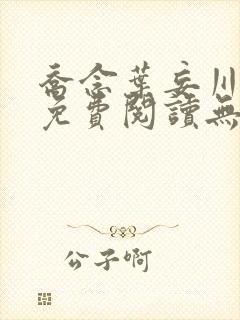 喬念葉妄川
免費閱讀無
公子啊